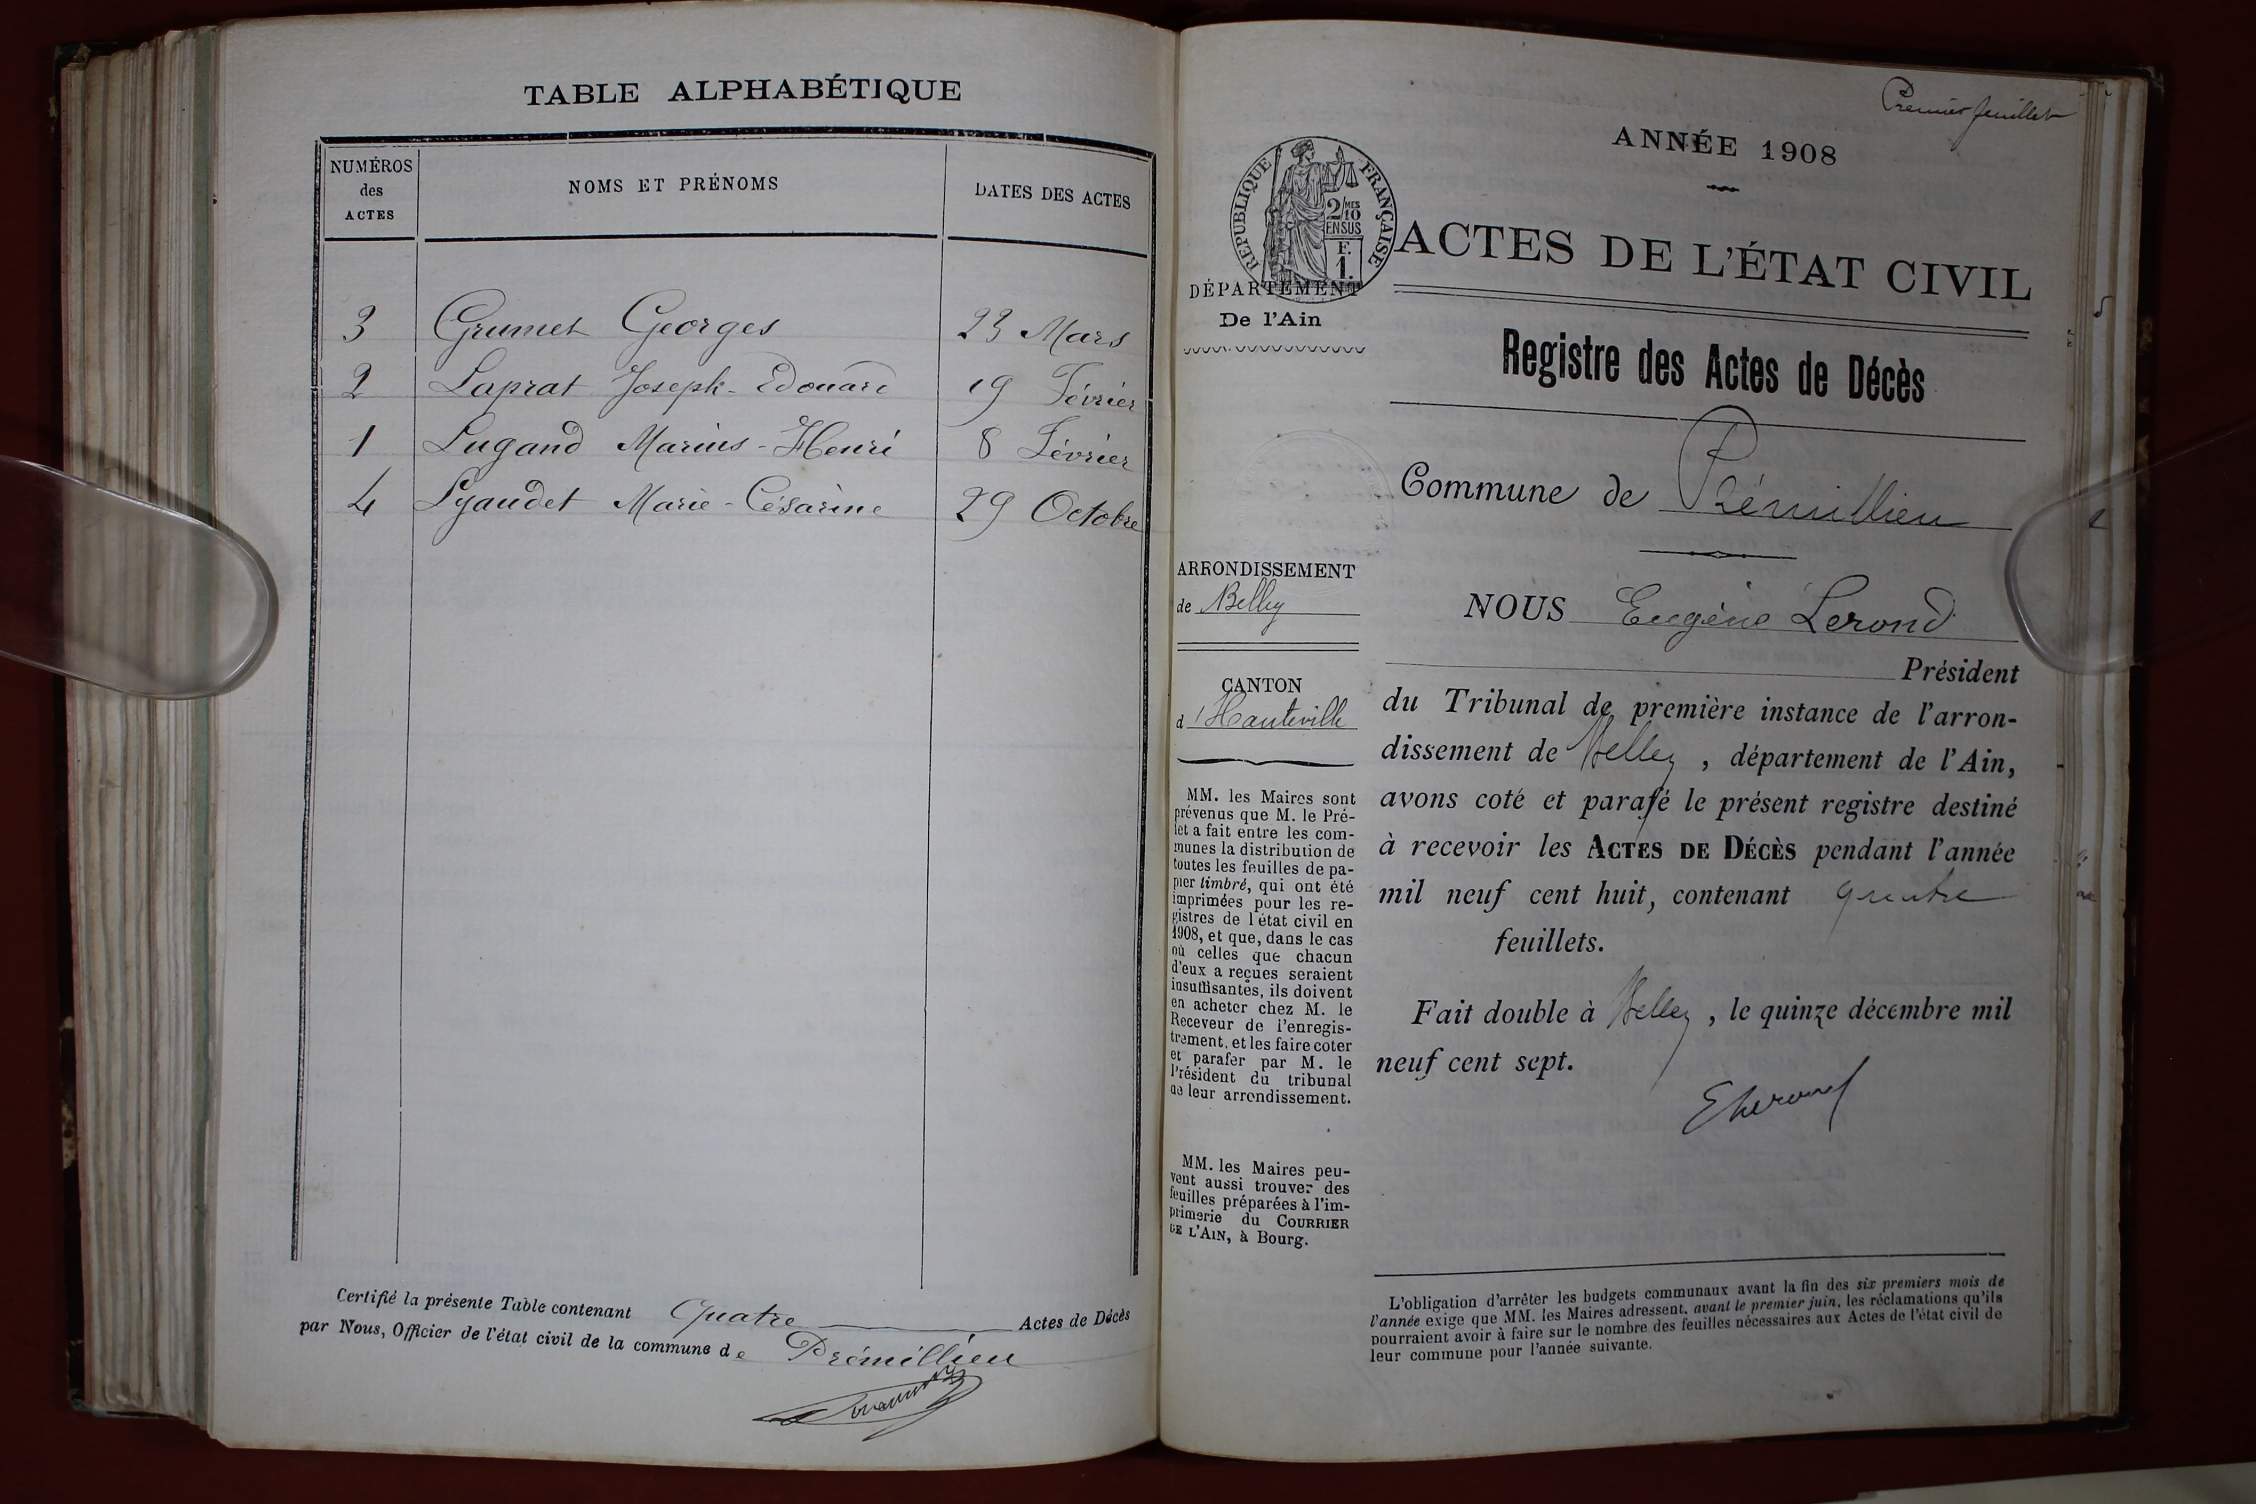 TABLE ALPHABÉTIQUE
NUMÉROS
des
ACTES
NOMS ET PRÉNOMS
DATES DES ACTES
3 Grumet Georges 23 Mars
2 Laprat Joseph-Edouard 19 Février
1 Lugand Marius-Henri 8 Février
4 Lyaudet Marie-Césarine 29 Octobre
Certifié la présente Table contenant Quatre Actes de Décès
par Nous, Officier de l'état civil de la commune de Prémillieu
Premier feuillet
ANNÉE 1908
RÉPUBLIQUE FRANÇAISE
2/10 MES
EN SUS
F.
1.
ACTES DE L'ÉTAT CIVIL
DÉPARTEMENT
De l'Ain
Registre des Actes de Décès
Commune de Prémillieu
ARRONDISSEMENT
de Belley
NOUS Eugène Lerond
Président
CANTON
d'Hauteville
du Tribunal de première instance de l'arron-
dissement de Belley, département de l'Ain,
avons coté et parafé le présent registre destiné
à recevoir les ACTES DE DÉCÈS pendant l'année
mil neuf cent huit, contenant quatre
feuillets.
Fait double à Belley, le quinze décembre mil
neuf cent sept.
ELerond
MM. les Maires sont
prévenus que M. le Pré-
fet a fait entre les com-
munes la distribution de
toutes les feuilles de pa-
pier timbré, qui ont été
imprimées pour les re-
gistres de l'état civil en
1908, et que, dans le cas
où celles que chacun
d'eux a reçues seraient
insuffisantes, ils doivent
en acheter chez M. le
Receveur de l'enregis-
trement, et les faire coter
et parafer par M. le
Président du tribunal
de leur arrondissement.
MM. les Maires peu-
vent aussi trouver des
feuilles préparées à l'im-
primerie du COURRIER
DE L'AIN, à Bourg.
L'obligation d'arrêter les budgets communaux avant la fin des six premiers mois de
l'année exige que MM. les Maires adressent, avant le premier juin, les réclamations qu'ils
pourraient avoir à faire sur le nombre des feuilles nécessaires aux Actes de l'état civil de
leur commune pour l'année suivante.